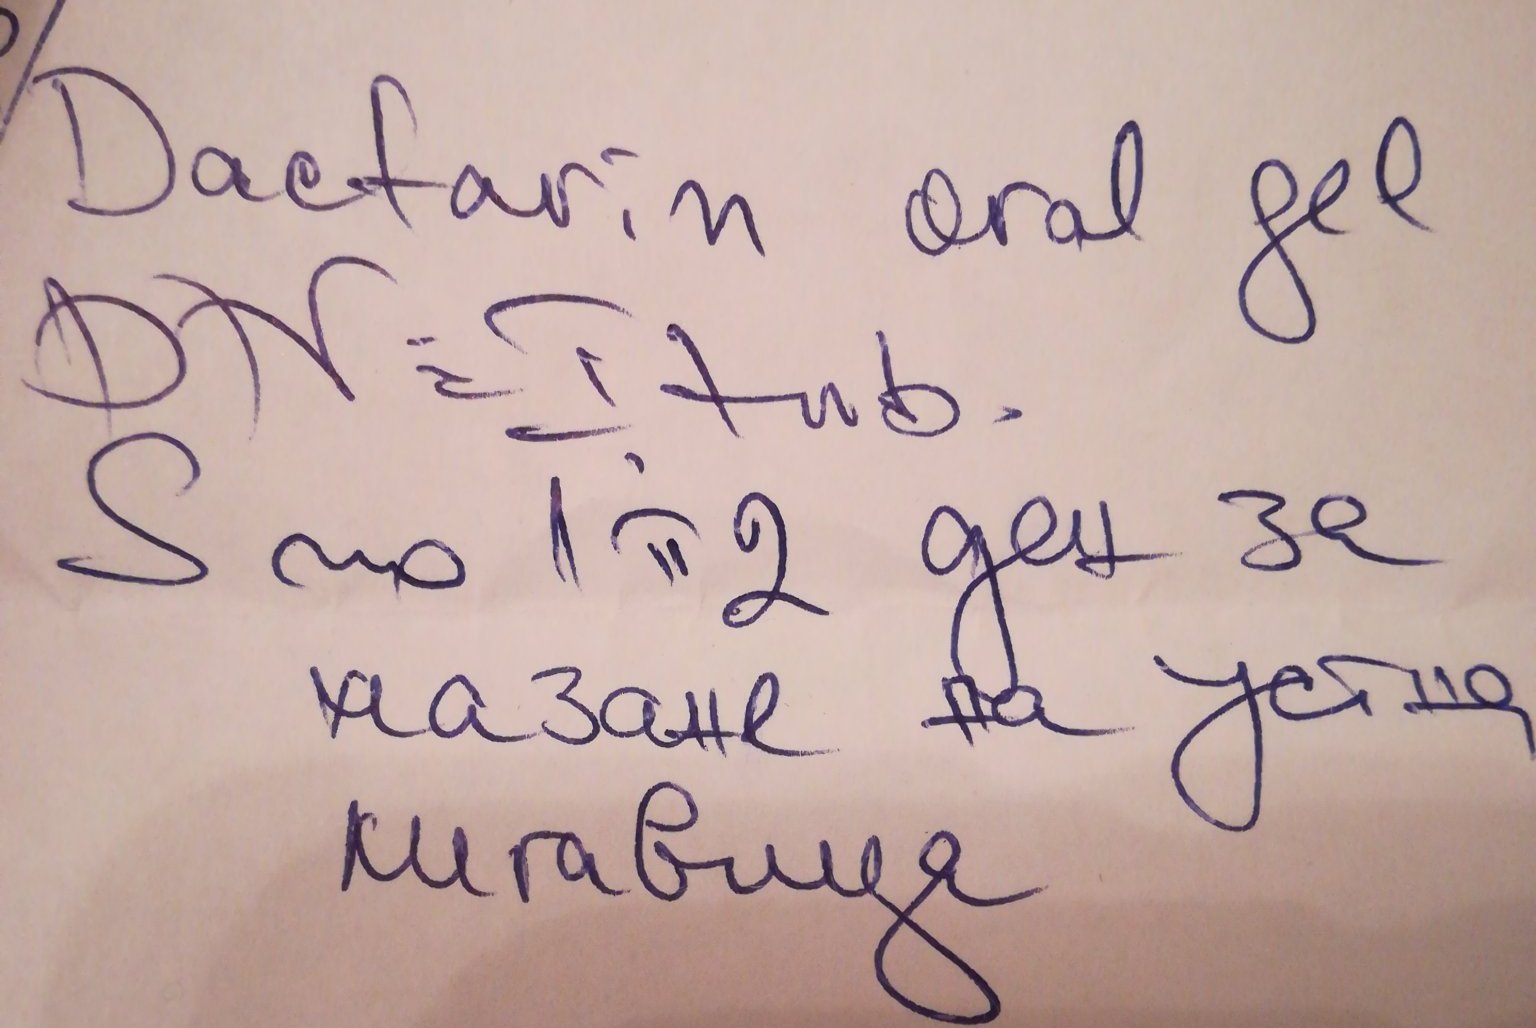 Dactarin oral gel
DN = I tub.
S по 1 п 2 ден за
мазане на устна
лигавица